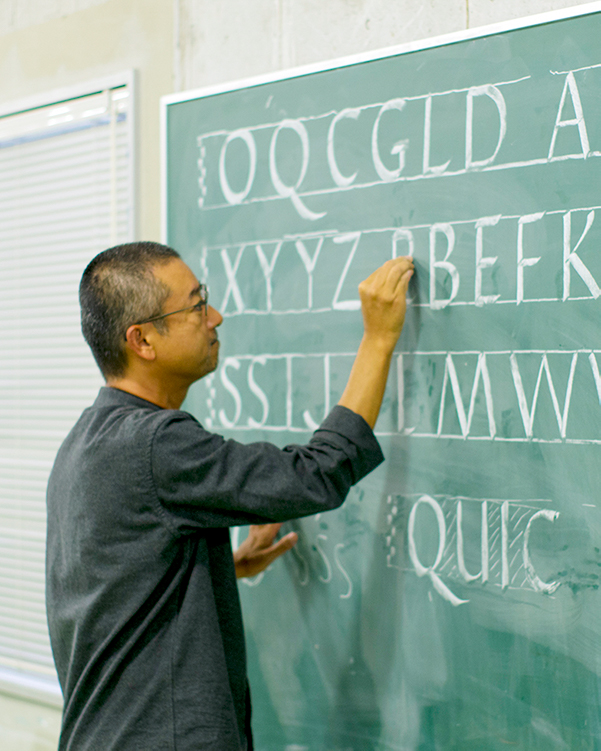 OQCGLD A
XYYZ BEFK
SSIJ MW
QUIC